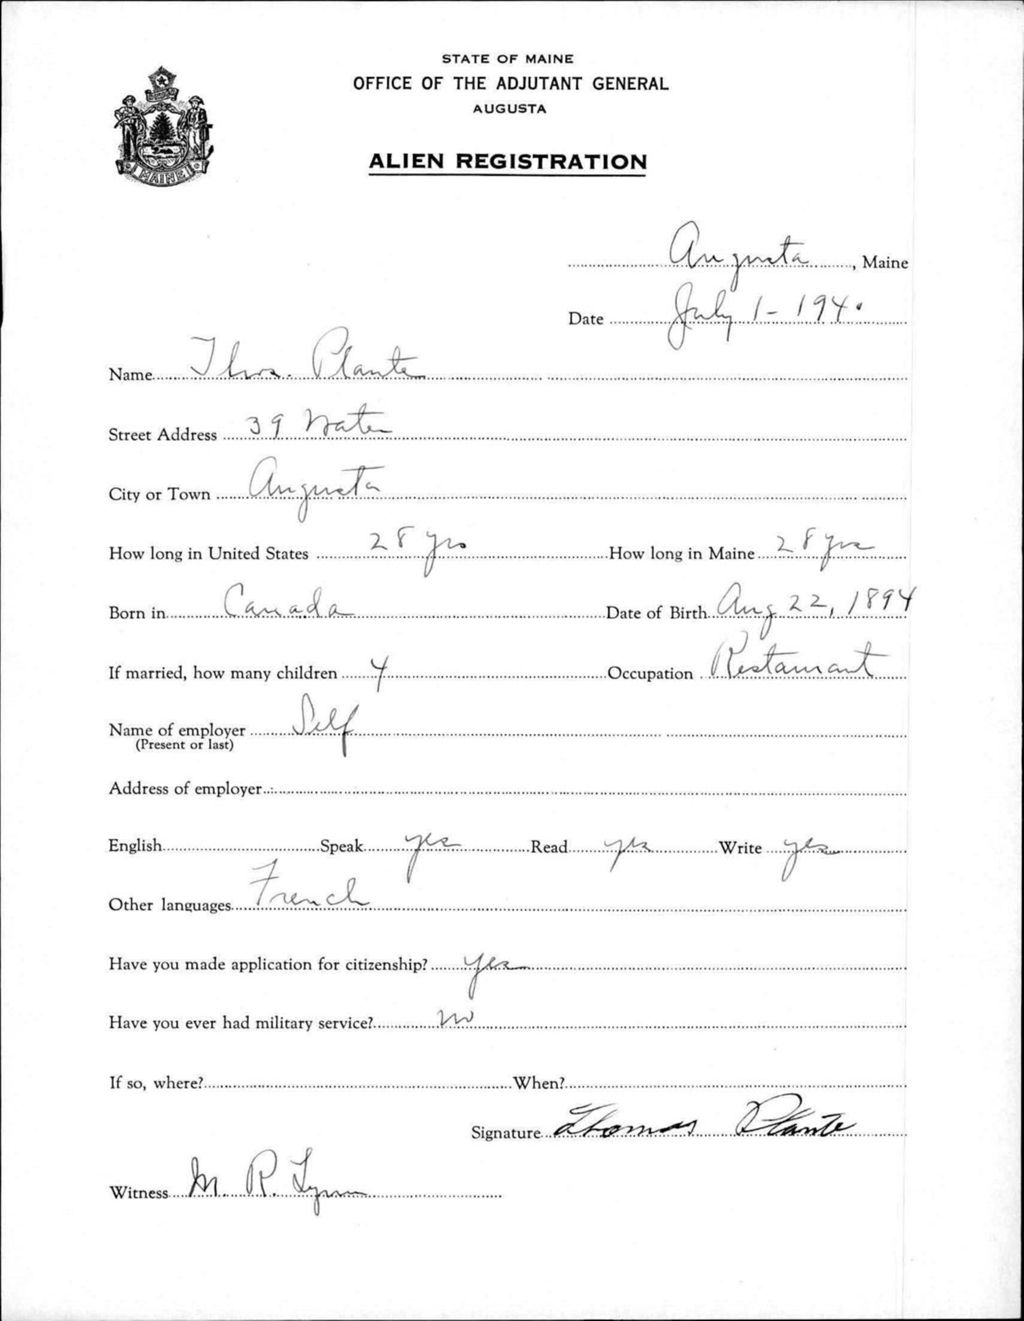 STATE OF MAINE
OFFICE OF THE ADJUTANT GENERAL
AUGUSTA
ALIEN REGISTRATION
MAINE
Augusta, Maine
Date July 1 - 1940
Name Thos. Plante
Street Address 39 Water
City or Town Augusta
How long in United States 28 yrs How long in Maine 28 yrs
Born in Canada Date of Birth Aug 22, 1894
If married, how many children 4 Occupation Restaurant
Name of employer Self
(Present or last)
Address of employer
English Speak yes Read yes Write yes
Other languages French
Have you made application for citizenship? yes
Have you ever had military service? no
If so, where? When?
Signature Thomas Plante
Witness M. R. Lynn